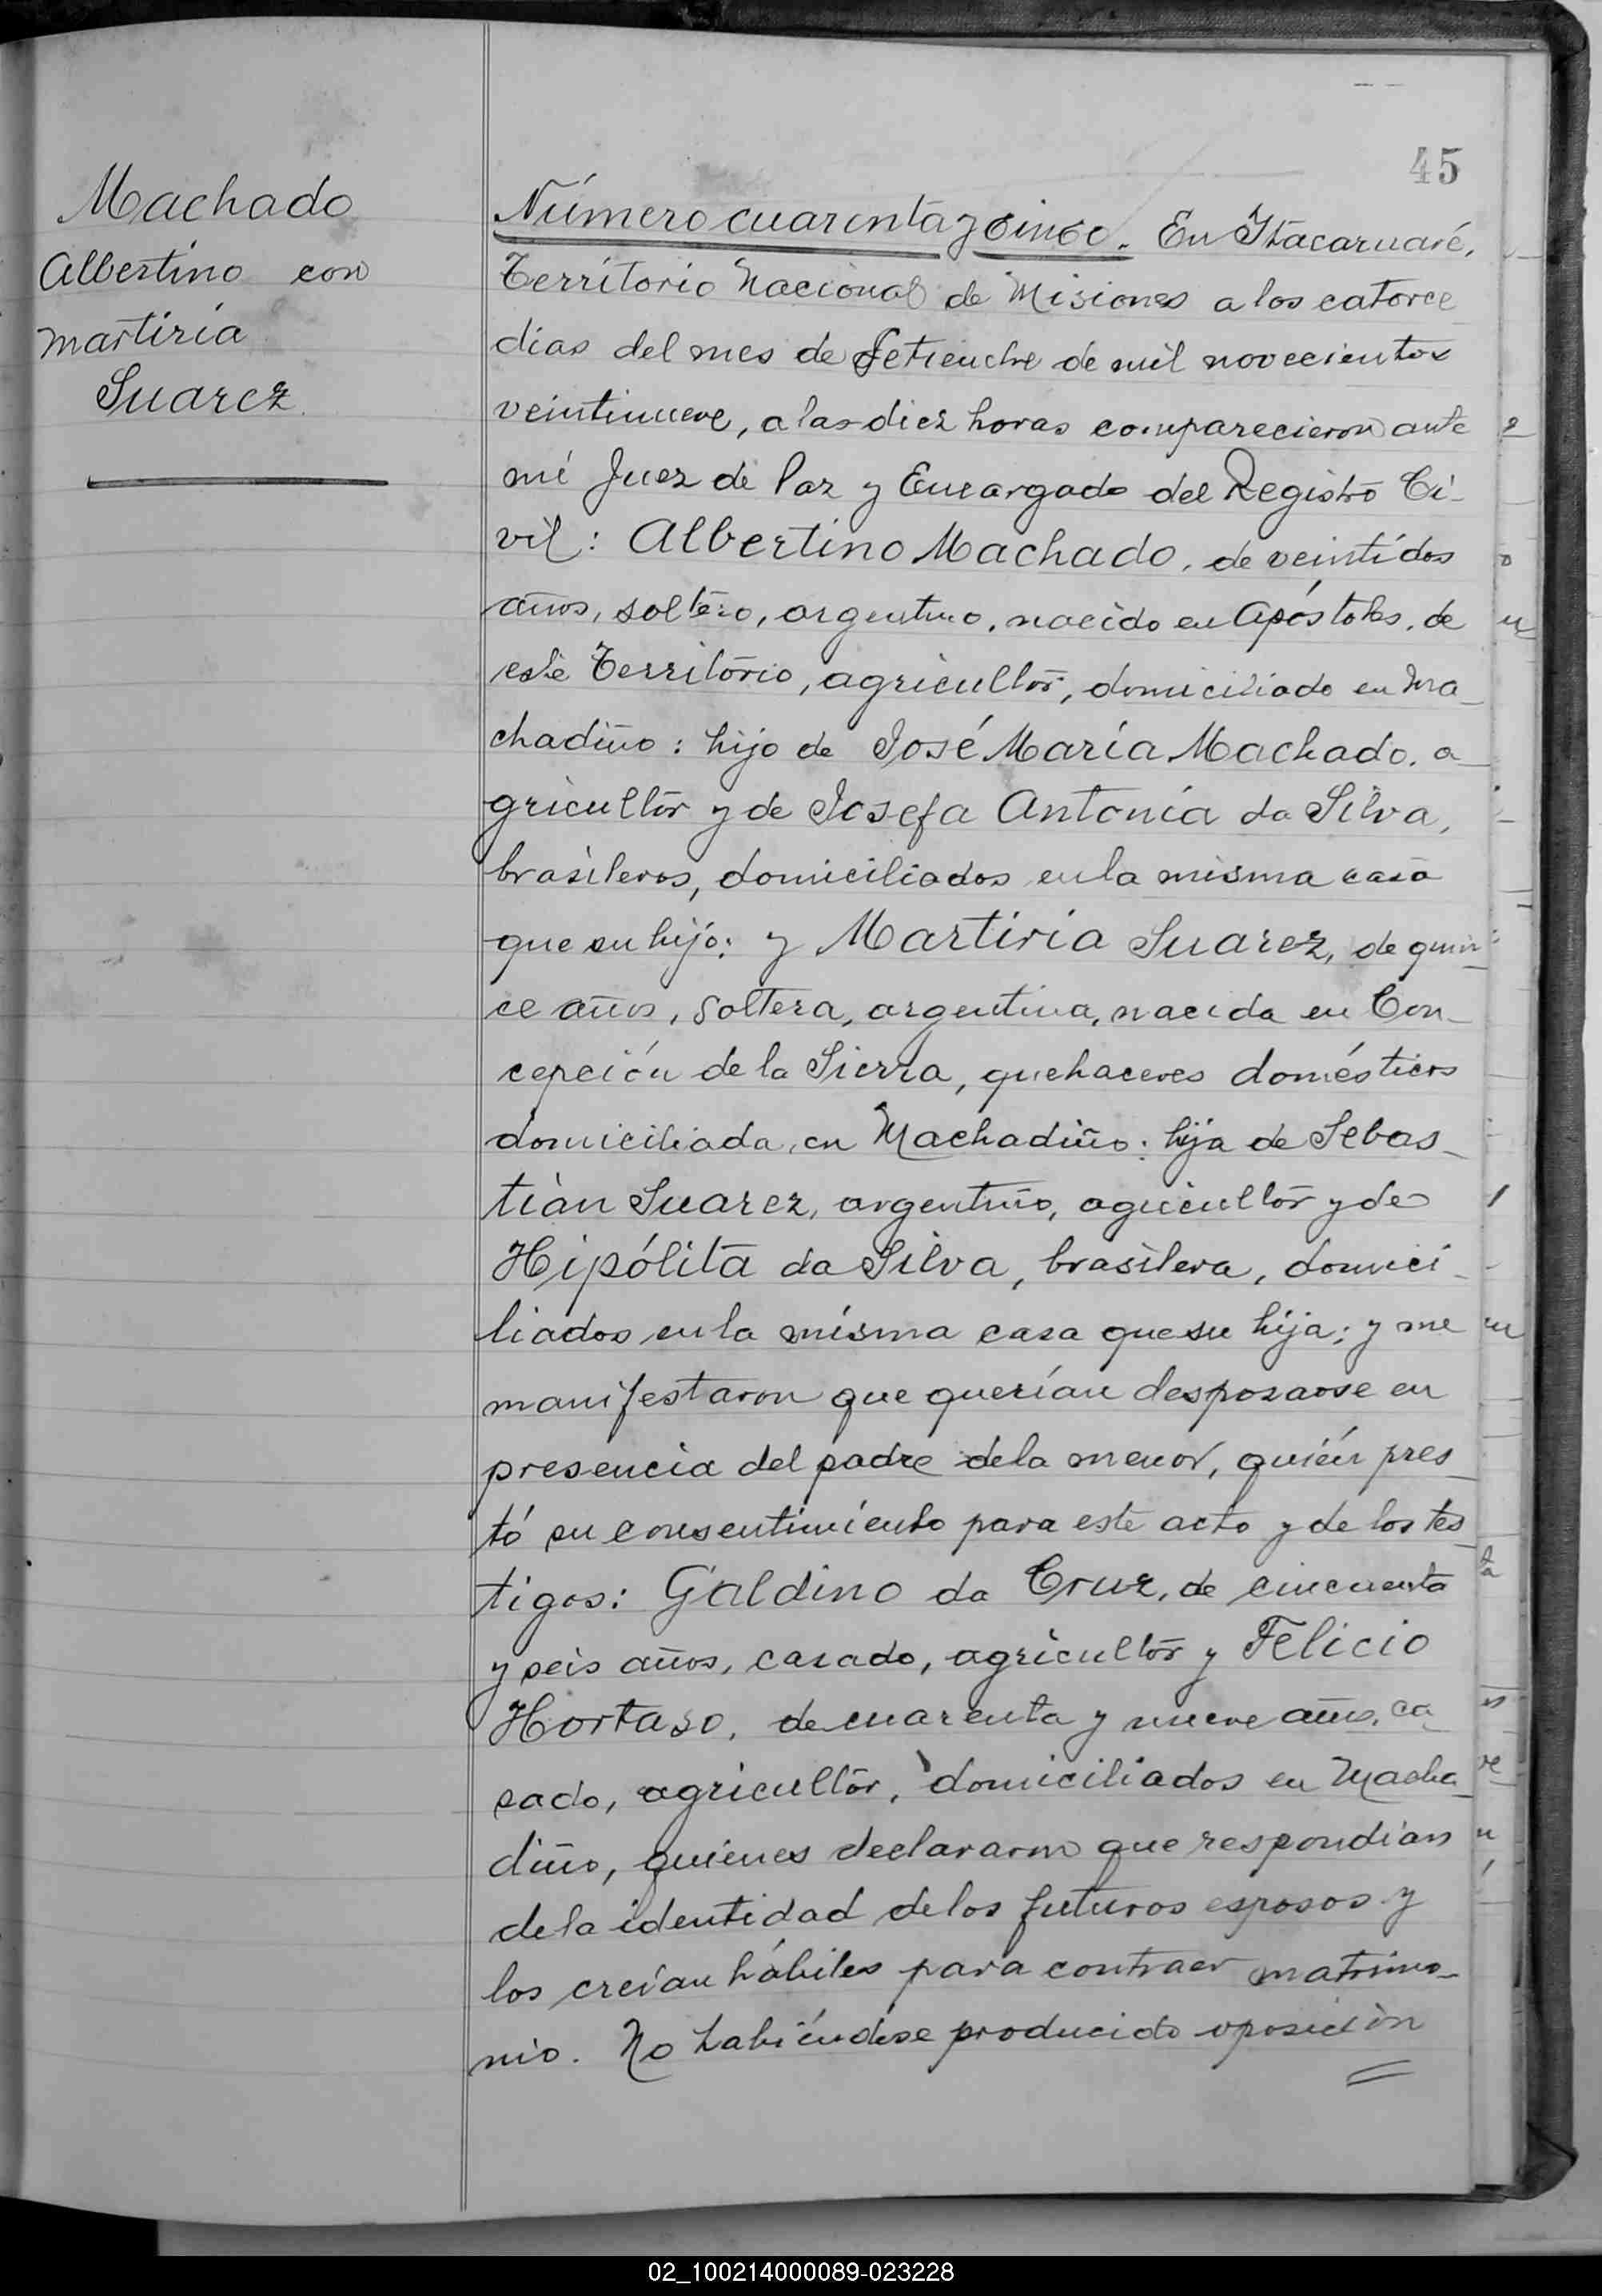 45
Machado
Albertino con
Martiria
Suarez
Número cuarenta y cinco. En Itacaruaré,
Territorio Nacional de Misiones a los catorce
dias del mes de Setiembre de mil novecientos
veintinueve, a las diez horas comparecieron ante
mi Juez de Paz y Encargado del Registro Ci-
vil: Albertino Machado, de veintidos
años, soltero, argentino, nacido en Apóstoles, de
este Territorio, agricultor, domiciliado en Ma-
chadiño: hijo de José María Machado, a-
gricultor y de Josefa Antonia da Silva,
brasileros, domiciliados en la misma casa
que su hijo: y Martiria Suarez, de quin-
ce años, soltera, argentina, nacida en Con-
cepción de la Sierra, quehaceres domésticos
domiciliada en Machadiño: hija de Sebas-
tian Suarez, argentino, agricultor y de
Hipólita da Silva, brasilera, domici-
liados en la misma casa que su hija; y me
manifestaron que querían desposarse en
presencia del padre de la menor, quién pres-
tó su consentimiento para este acto y de los tes-
tigos: Galdino da Cruz, de cincuenta
y seis años, casado, agricultor y Felicio
Hortaso, de cuarenta y nueve años, ca-
sado, agricultor, domiciliados en Macha-
diño, quienes declararon que respondian
de la identidad de los futuros esposos y
los creían hábiles para contraer matrimo-
nio. No habiéndose producido oposición
02_100214000089-023228